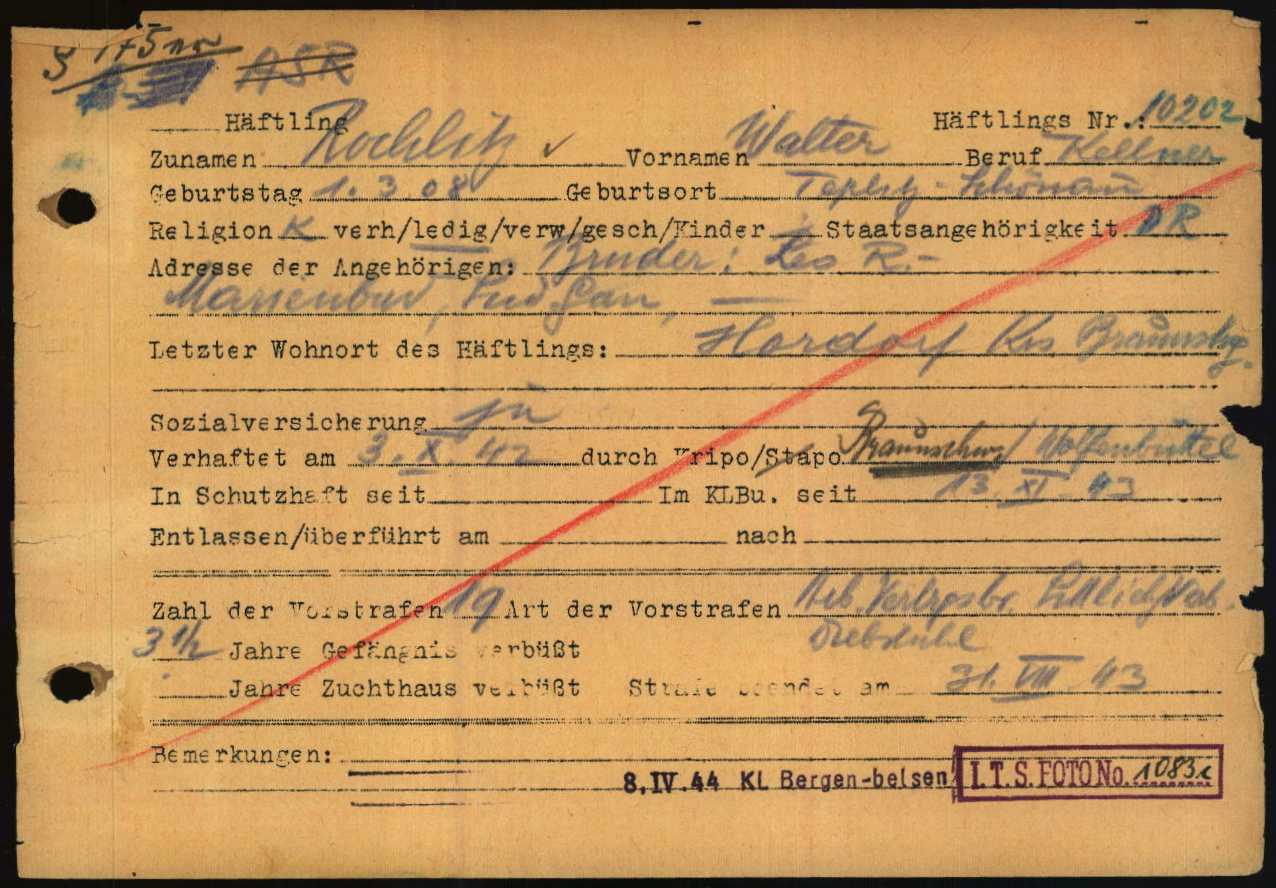 § 175
ASR
Häftling Häftlings Nr.: 10202
Zunamen Rochlitz Vornamen Walter Beruf Kellner
Geburtstag 1.3.08 Geburtsort Teplitz-Schönau
Religion K verh/ledig/verw/gesch/Kinder Staatsangehörigkeit DR
Adresse der Angehörigen: Bruder: Leo R.-
Marienbad, Sud Gau, —
Letzter Wohnort des Häftlings: Hordorf Krs Braunschg.
Sozialversicherung ja
Verhaftet am 3. X. 42 durch Kripo/Stapo Braunschwg / Wolfenbüttel
In Schutzhaft seit Im KLBu. seit 13. XI. 43
Entlassen/überführt am nach
Zahl der Vorstrafen 19 Art der Vorstrafen Arb. Vertrgsbr. Sittlichk Verb.
3 1/2 Jahre Gefängnis verbüßt Diebstähle
Jahre Zuchthaus verbüßt Strafe beendet am 31. VIII. 43
Bemerkungen:
8.IV.44 KL Bergen-belsen I.T.S. FOTO No.